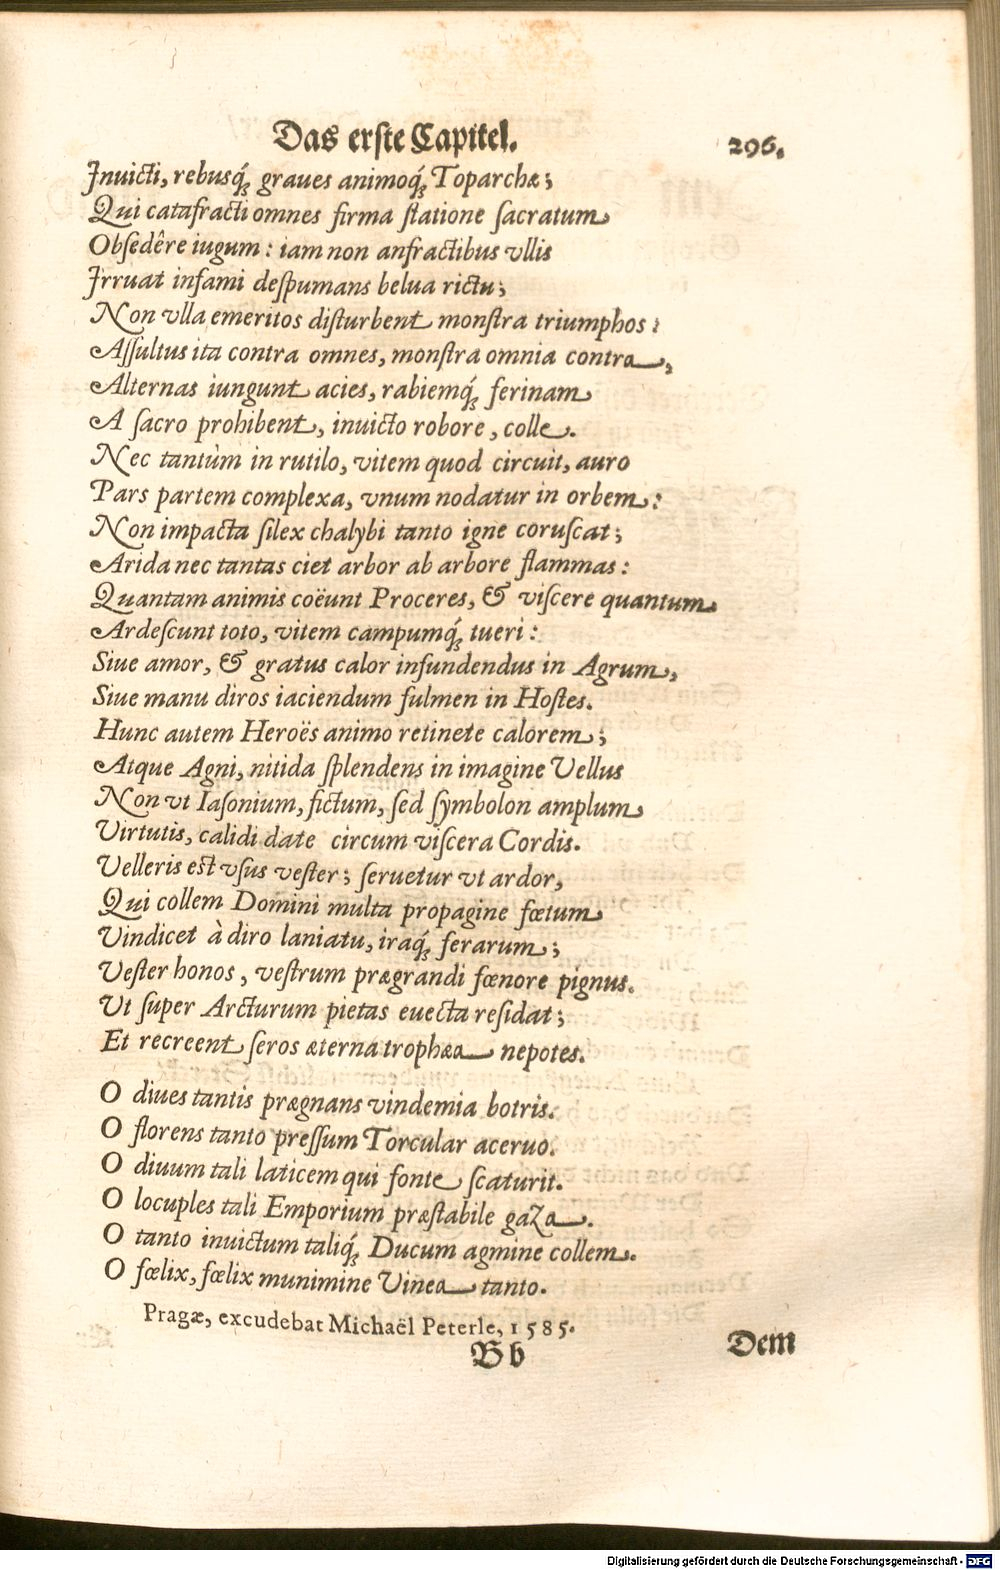 Das erste Capitel. 296.
Inuicti, rebusq́; graues animoq́; Toparchæ;
Qui catafracti omnes firma statione sacratum
Obsedêre iugum: iam non anfractibus vllis
Irruat infami despumans belua rictu;
Non vlla emeritos disturbent monstra triumphos:
Assultus ita contra omnes, monstra omnia contra,
Alternas iungunt acies, rabiemq́; ferinam
A sacro prohibent, inuicto robore, colle.
Nec tantùm in rutilo, vitem quod circuit, auro
Pars partem complexa, vnum nodatur in orbem:
Non impacta silex chalybi tanto igne coruscat;
Arida nec tantas ciet arbor ab arbore flammas:
Quantam animis coëunt Proceres, & viscere quantum
Ardescunt toto, vitem campumq́; tueri:
Siue amor, & gratus calor infundendus in Agrum,
Siue manu diros iaciendum fulmen in Hostes.
Hunc autem Heroës animo retinete calorem;
Atque Agni, nitida splendens in imagine Vellus
Non vt Iasonium, fictum, sed symbolon amplum
Virtutis, calidi date circum viscera Cordis.
Velleris est vsus vester; seruetur vt ardor,
Qui collem Domini multa propagine fœtum
Vindicet à diro laniatu, iraq́; ferarum;
Vester honos, vestrum prægrandi fœnore pignus.
Vt super Arcturum pietas euecta residat;
Et recreent seros æterna trophæa nepotes.
O diues tantis prægnans vindemia botris.
O florens tanto pressum Torcular aceruo.
O diuum tali laticem qui fonte scaturit.
O locuples tali Emporium præstabile gaza.
O tanto inuictum taliq́; Ducum agmine collem.
O fœlix, fœlix munimine Vinea tanto.
Pragæ, excudebat Michaël Peterle, 1585.
Bb Dem
Digitalisierung gefördert durch die Deutsche Forschungsgemeinschaft - DFG